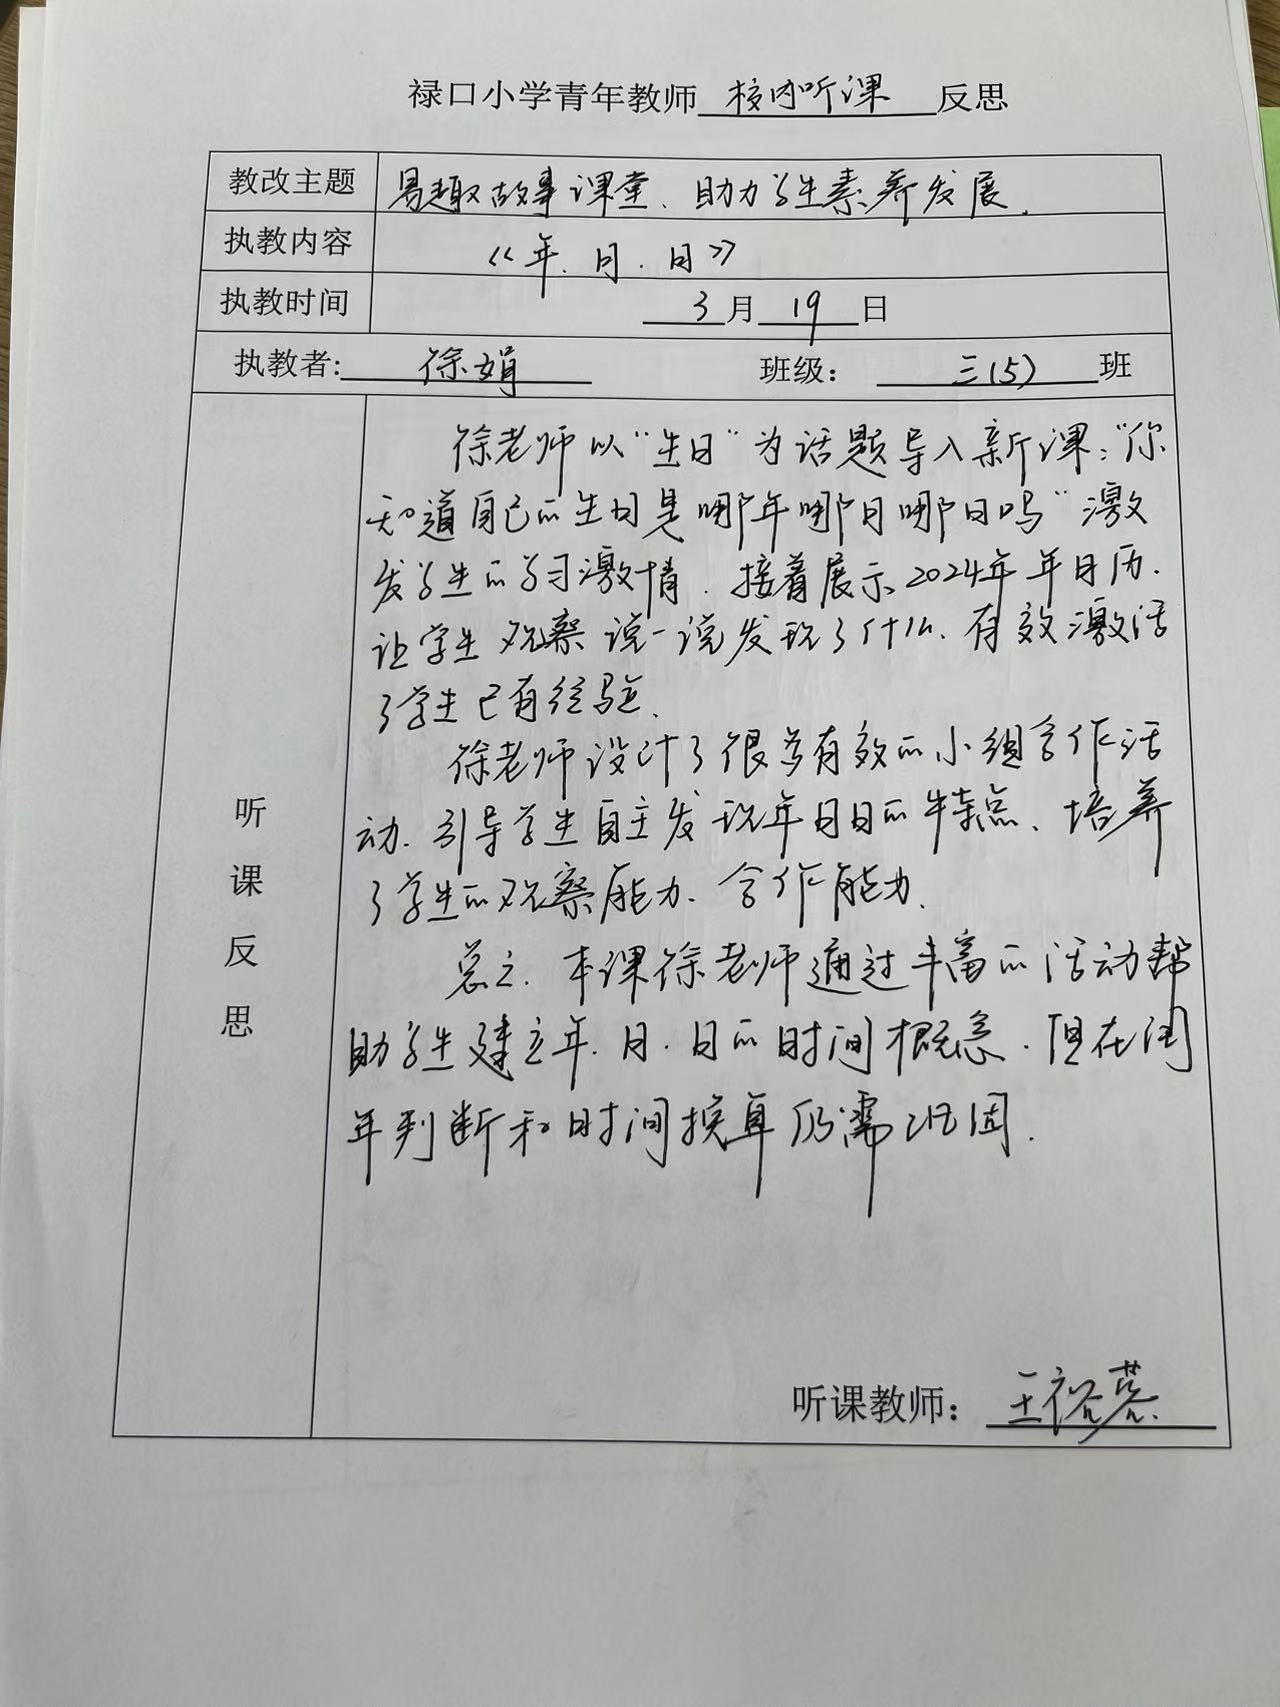 禄口小学青年教师 校内听课 反思
教改主题 易趣故事课堂、助力学生素养发展.
执教内容 《年.月.日》
执教时间 3月19日
执教者: 徐娟 班级: 三(5) 班
徐老师以“生日”为话题导入新课:“你
知道自己的生日是哪年哪月哪日吗”激
发学生的学习激情.接着展示2024年年日历.
让学生观察说一说发现了什么、有效激活
了学生已有经验.
徐老师设计了很多有效的小组合作活
动.引导学生自主发现年月日的特点、培养
了学生的观察能力.合作能力.
总之.本课徐老师通过丰富的活动帮
助学生建立年.月.日的时间概念.但在闰
年判断和时间换算仍需巩固.
听课反思
听课教师: 王裕蓉